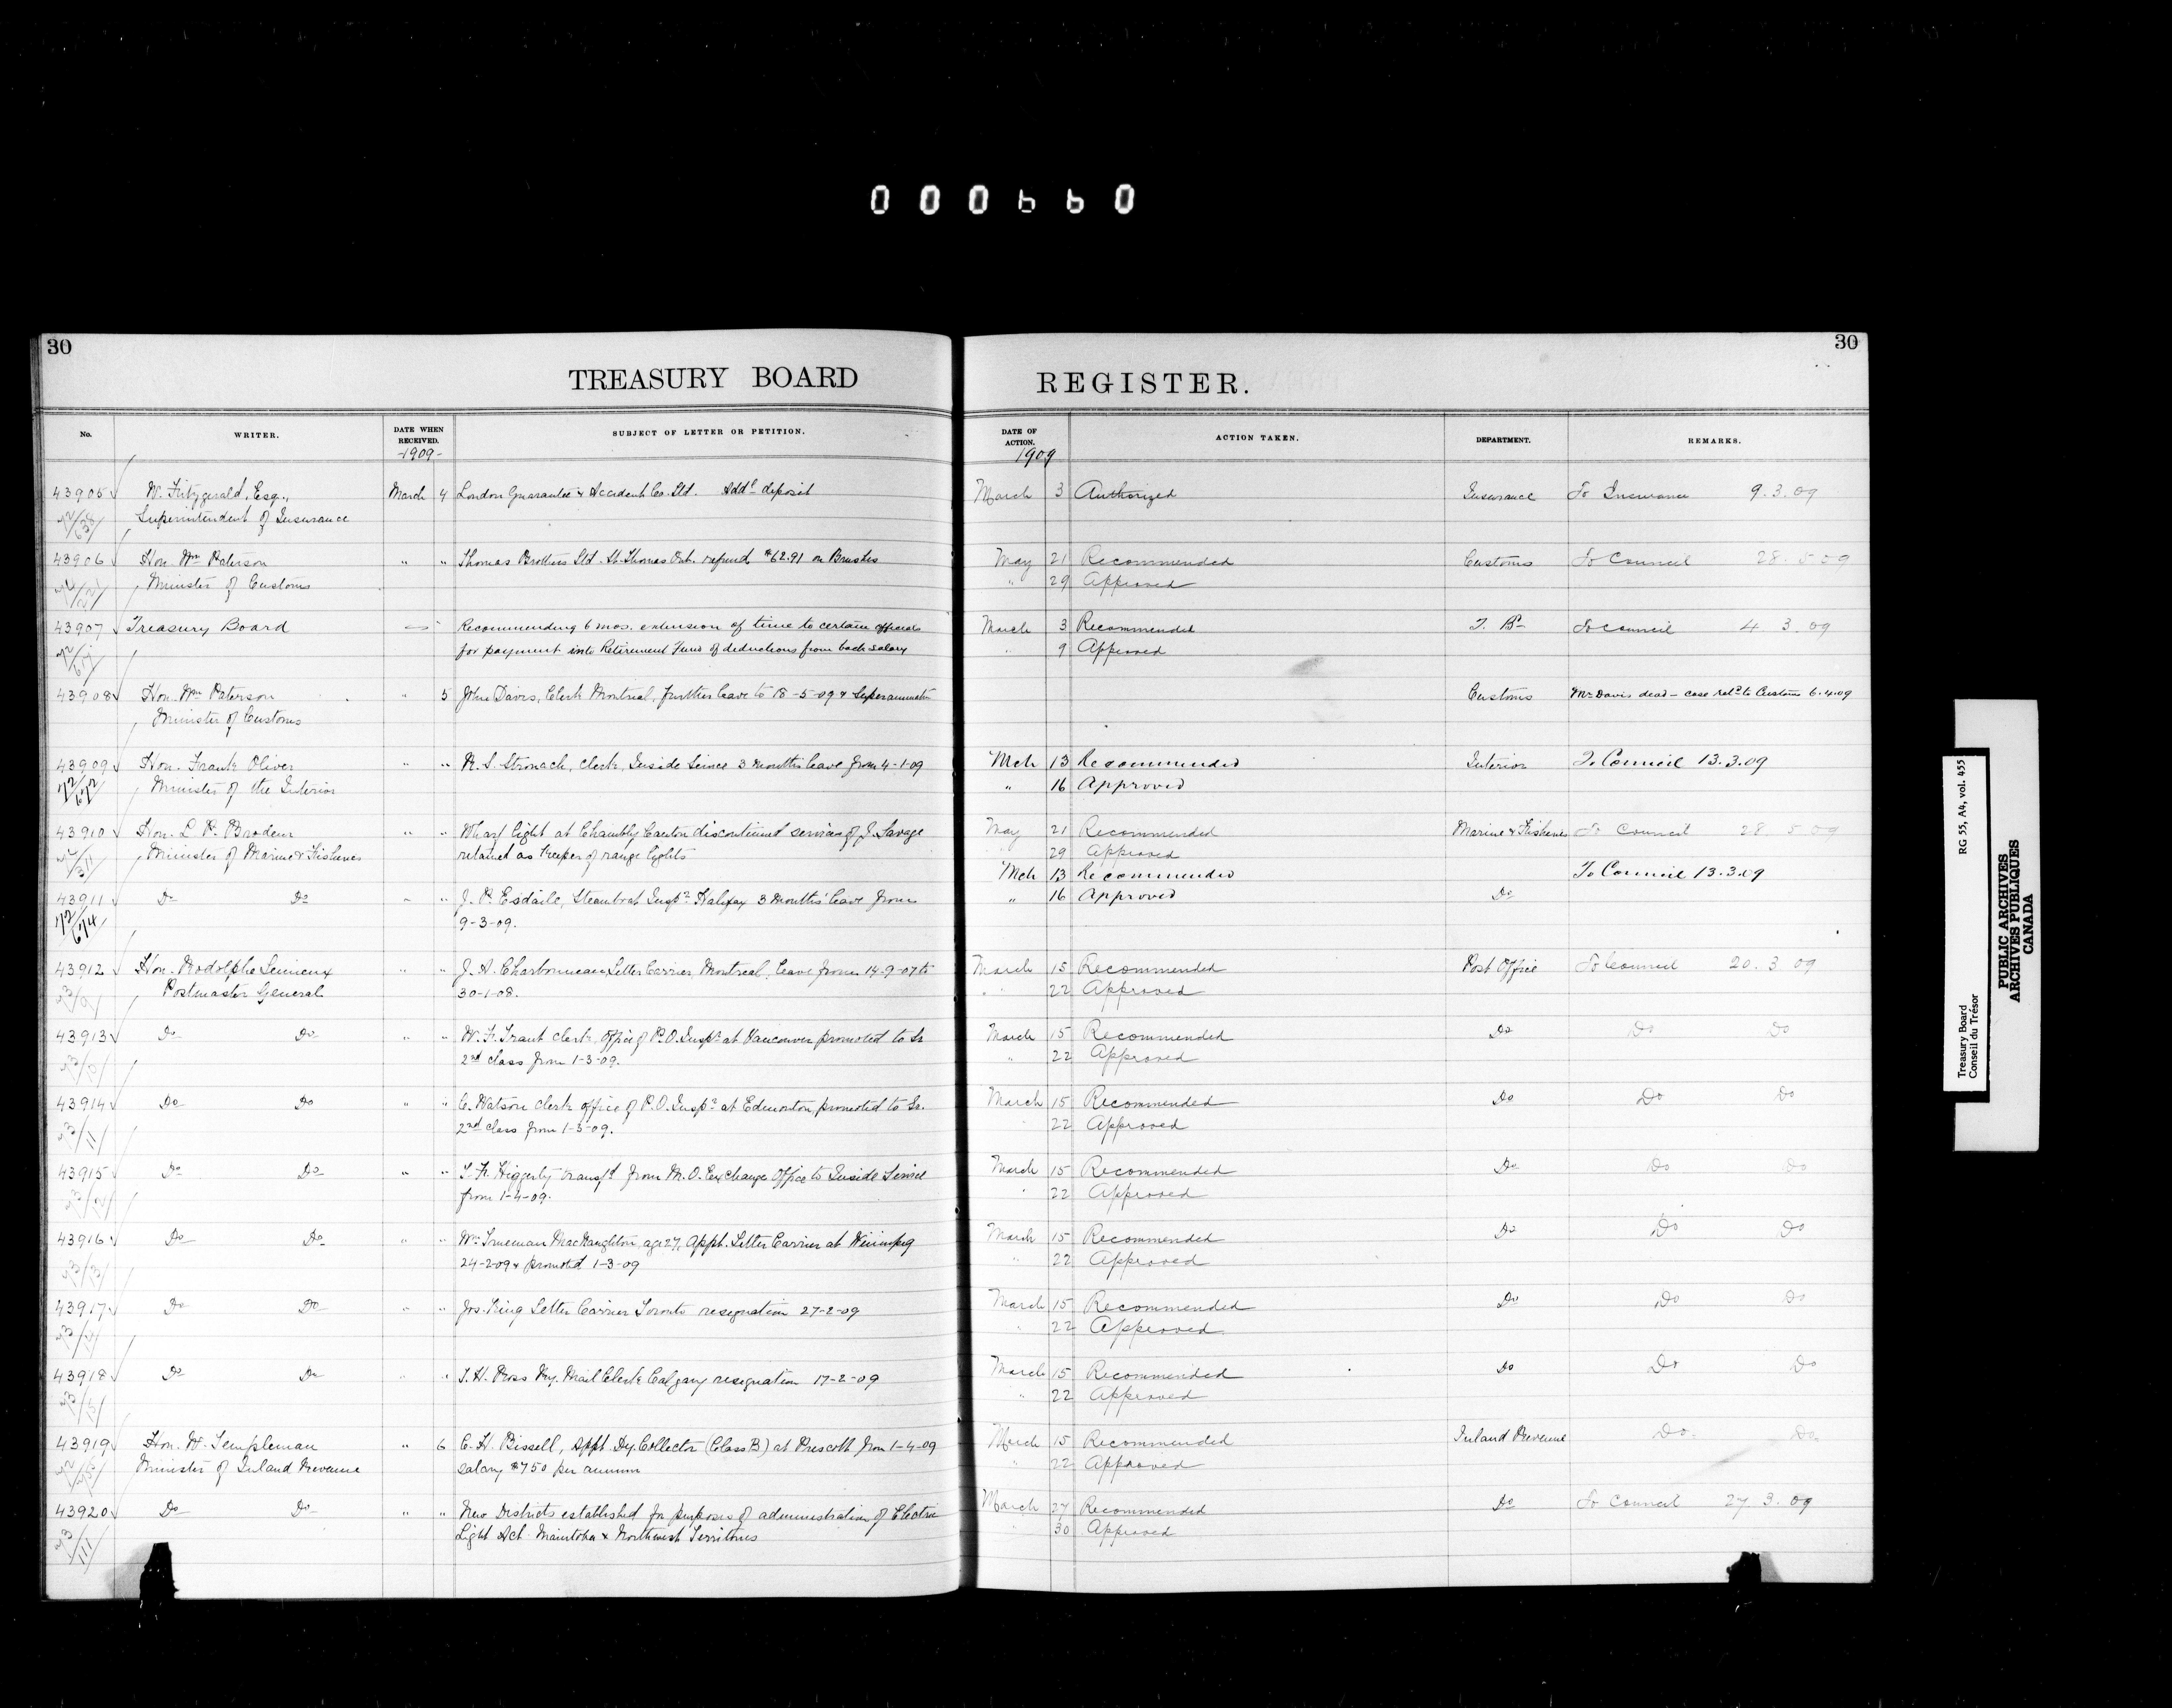 000660
30
TREASURY BOARD
No.
WRITER.
DATE WHEN RECEIVED.
-1909-
SUBJECT OF LETTER OR PETITION.
43905 W. Fitzgerald, Esq., March 4 London Guarantee & Accident Co. Ltd. Add'l deposit
Superintendent of Insurance
43906 Hon. Wm Paterson " " Thomas Brothers Ltd. St. Thomas Ont. refund $62.91 on Brushes
Minister of Customs
43907 Treasury Board Recommending 6 mos. extension of time to certain officials
for payment into Retirement Fund of deductions from back salary
43908 Hon. Wm Paterson " 5 John Davis, Clerk Montreal, further leave to 18-5-09 & Superannuation
Minister of Customs
43909 Hon. Frank Oliver " " N. S. Stronach, clerk, Inside Service 3 months leave from 4-1-09
Minister of the Interior
43910 Hon. L. P. Brodeur " " Wharf light at Chambly Canton discontinued services of J. Savage
Minister of Marine & Fisheries retained as Keeper of range lights
43911 Do Do " " J. P. Esdaile, Steamboat Inspr Halifax 3 months' leave from
9-3-09.
43912 Hon. Rodolphe Lemieux " " J. A. Charbonneau Letter Carrier, Montreal, leave from 14-9-07 to
Postmaster General 30-1-08.
43913 Do Do " " W. F. Trant clerk, office of P.O. Inspr at Vancouver promoted to Sr
2nd class from 1-3-09.
43914 Do Do " " C. Watson clerk office of P.O. Inspr at Edmonton, promoted to Sr.
2nd class from 1-3-09.
43915 Do Do " " T. F. Higgerty transf'd from M.O. Exchange Office to Inside Service
from 1-4-09.
43916 Do Do " " Wm Trueman MacNaughton, age 27, Appt. Letter Carrier at Winnipeg
24-2-09 & promoted 1-3-09
43917 Do Do " " Jos. King Letter Carrier Toronto resignation 27-2-09
43918 Do Do " " T. H. Ross Ry. Mail Clerk Calgary resignation 17-2-09
43919 Hon. W. Templeman " 6 C. H. Bissell, Appt. Dy. Collector (Class B) at Prescott from 1-4-09
Minister of Inland Revenue salary $750 per annum
43920 Do Do " " New Districts established for purposes of administration of Electric
Light Act. Manitoba & Northwest Territories
30
REGISTER.
DATE OF ACTION.
1909
ACTION TAKEN.
DEPARTMENT.
REMARKS.
March 3 Authorized Insurance To Insurance 9.3.09
May 21 Recommended Customs To Council 28.5.09
" 29 Approved
March 3 Recommended T. Bd To Council 4.3.09
" 9 Approved
Customs Mr Davis dead - case retd to Customs 6.4.09
Mch 13 Recommended Interior To Council 13.3.09
" 16 Approved
May 21 Recommended Marine & Fisheries To Council 28.5.09
29 Approved
Mch 13 Recommended To Council 13.3.09
" 16 Approved Do
March 15 Recommended Post Office To Council 20.3.09
" 22 Approved
March 15 Recommended Do Do Do
" 22 Approved
March 15 Recommended Do Do Do
" 22 Approved
March 15 Recommended Do Do Do
" 22 Approved
March 15 Recommended Do Do Do
" 22 Approved
March 15 Recommended Do Do Do
" 22 Approved
March 15 Recommended Do Do Do
" 22 Approved
March 15 Recommended Inland Revenue Do Do
" 22 Approved
March 27 Recommended Do To Council 27.3.09
" 30 Approved
Treasury Board RG 55, A4, vol. 455
Conseil du Trésor
PUBLIC ARCHIVES
ARCHIVES PUBLIQUES
CANADA